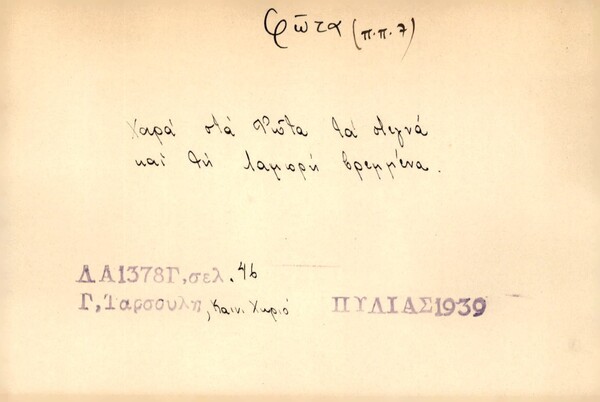 Φῶτα (π.π. 7)
Χαρά στά Φῶτα τά στεγνά
καί τή Λαμπρή βρεμμένα.
ΛΑ1378Γ, σελ. 46
Γ, Ταρσούλη, Καιν. Χωριό ΠΥΛΙΑΣ1939